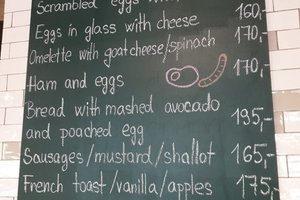 Scrambled eggs with 160,-
Eggs in glass with cheese 170,-
Omelette with goat cheese/spinach
Ham and eggs 170,-
Bread with mashed avocado
and poached egg 195,-
Sausages/mustard/shallot 165,-
French toast/vanilla/apples 175,-